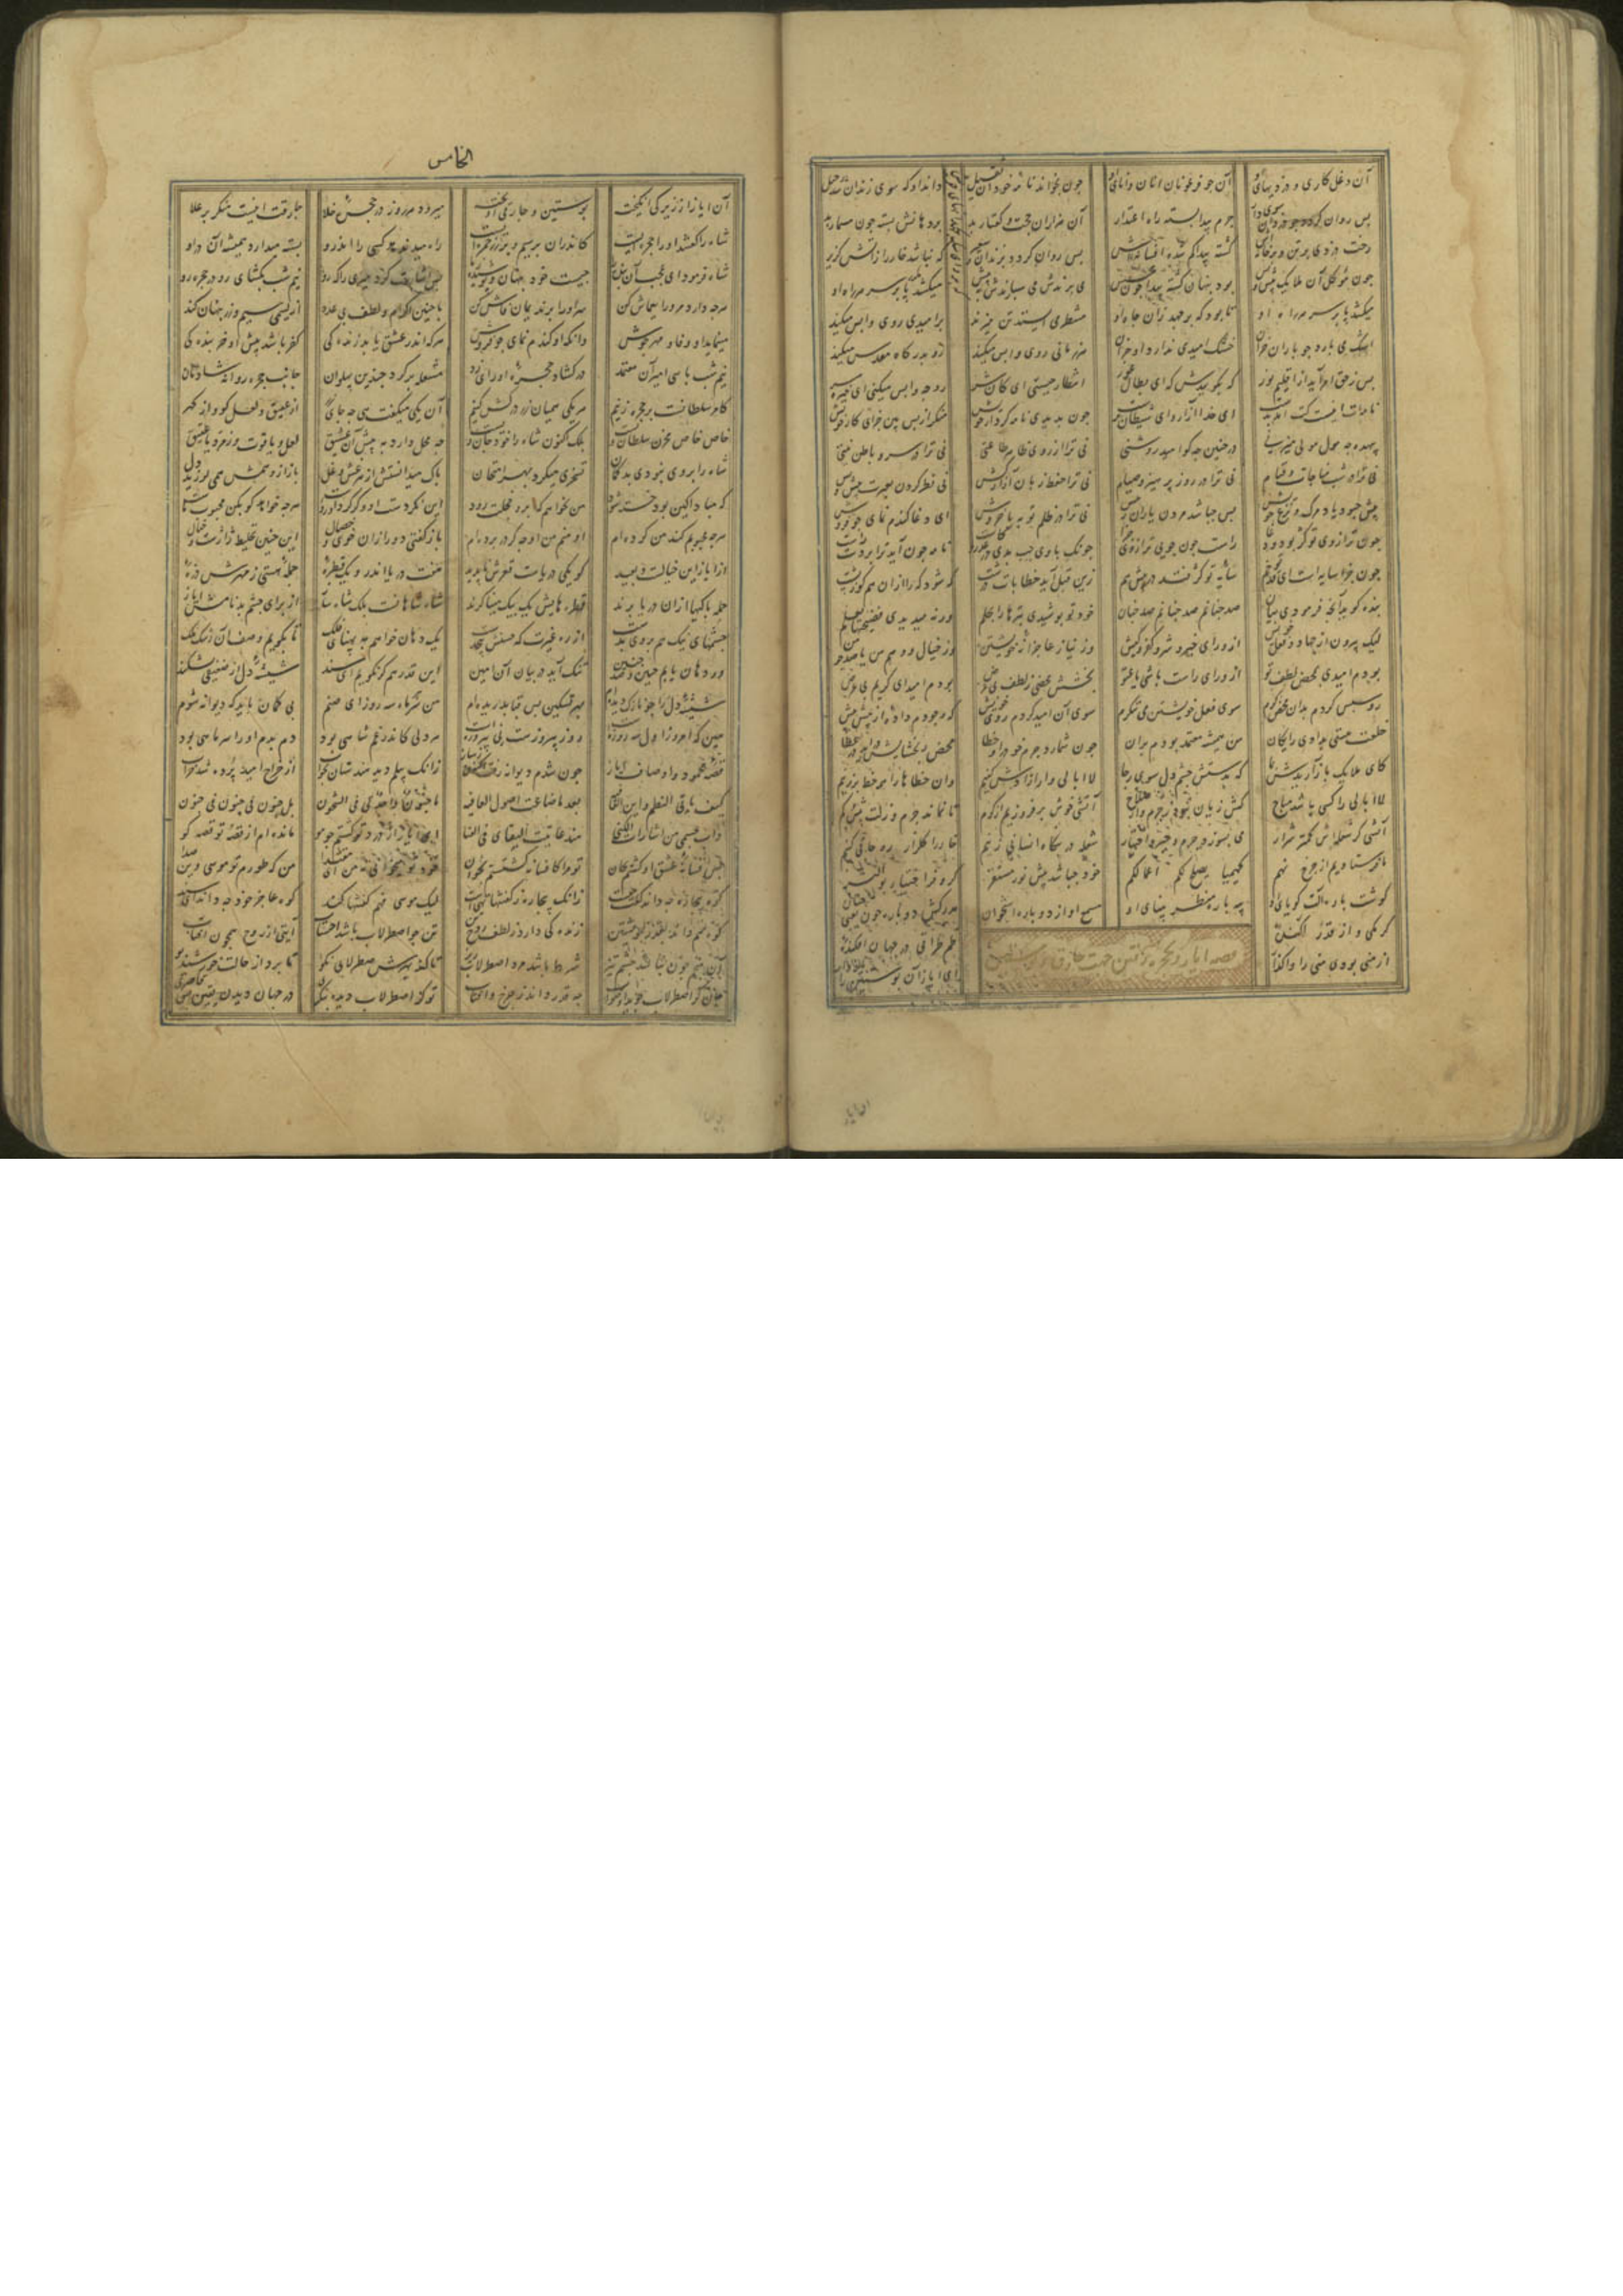 آن دغل کاری و دزدیهای او آن چو فرعونان انا و انای او چون بخواند نامه خود آن ثقیل داند او که سوی زندان شد رحیل
پس روان گردد چو دزدان سوی دار جرم پیدا بسته راه اعتذار آن هزاران حجت و گفتار بد بر دهانش بسته چون مسمار بد
رخت دزدی بر تن و در خانه‌اش گشته پیدا گم شده افسانه‌اش پس روان گردد بزندان سعیر که نباشد خار را ز آتش گزیر
چون موکل آن ملایک پیش و پس بوده پنهان گشته پیدا چون عسس می برندش می سپارندش به نیش
میکشد پا بر سر هر راه او تا بود که بر جهد زان چاه او منتظر می ایستد تن میزند بر امیدی روی واپس میکند
اشک می بارد چو باران خزان خشک امیدی ندارد او جز آن هر زمانی روی واپس میکند رو بدرگاه مقدس میکند
پس ز حق امر آید از اقلیم نور که بگوییدش که ای بطال عور انتظار چیستی ای کان شر رو چه واپس میکنی ای خیره سر
نامه‌ات آنست کت آمد بدست ای خدا آزار و ای شیطان پرست چون بدیدی نامه کردار خویش چه نگری از پس ببین جزای کار خویش
بیهده چه مول مولی میزنی در چنین چه کو امید روشنی نی ترا از روی ظاهر طاعتی نی ترا در سر و باطن نیتی
نی ترا در شب مناجات و قیام نی ترا در روز پرهیز و صیام نی ترا حفظ زبان ز آزار کس نی نظر کردن بعبرت پیش و پس
پیش چه بود یاد مرگ و نزع خویش پس چه باشد مردن یاران ز پیش نی ترا در ظلم توبه پر خروش ای دغا گندم نمای جو فروش
چون ترازوی تو کژ بود و دغا راست چون جویی ترازوی جزا
چون جزا سایه است ای قد تو خم سایه تو کژ فتد در پیش هم زین قبل آید خطابات درشت که شود که را از آن هم کوز پشت
بنده گوید آنچه فرمودی بیان صد چنانم صد چنانم صد چنان خود تو پوشیدی بترها را بحلم ورنه میدیدی فضیحتها بعلم
لیک بیرون از جهاد و فعل خویش از ورای خیر و شر و کفر و کیش وز نیاز عاجزانه خویشتن وز خیال و وهم من یا صد چو من
بودم امیدی بمحض لطف تو از ورای راست باشی یا عتو بخشش محضی ز لطف بی عوض بودم امید ای کریم بی غرض
رو سپس کردم بدان محض کرم سوی فعل خویشتن می ننگرم سوی آن امید کردم روی خویش که وجودم داده از پیش پیش
خلعت هستی بدادی رایگان من همیشه معتمد بودم بر آن چون شمارد جرم خود را و خطا محض بخشایش در آید در عطا
کای ملایک باز آریدش بما که بدستش چشم دل سوی رجا لاابالی وار آزادش کنیم وان خطاها را همه خط بر زنیم
لاابالی را کسی باشد مباح کش زیان نبود ز جرم و از صلاح آتشی خوش بر فروزیم از کرم تا نماند جرم و زلت بیش و کم
آتشی کز شعله‌اش کمتر شرار می بسوزد جرم و جبر و اختیار شعله در بنگاه انسانی زنیم خار را گلزار روحانی کنیم
ما فرستادیم از چرخ نهم کیمیا یصلح لکم اعمالکم خود چه باشد پیش نور مستقر کر و فر اختیار بوالبشر
گوشت پاره آلت گویای او پیه پاره منظر بینای او مسمع او از دو پاره استخوان
کرمکی و از قذر آکنده طمطراقی در جهان افکنده
از منی بودی منی را واگذار ای ایاز آن پوستین را یاد آر
الخامس
آن ایاز از زیرکی انگیخته پوستین و چارقش آویخته میرود هر روز در حجره خلا چارقت اینست منگر بر علا
شاه را گفتند او را حجره ایست کاندران زر و سیم و خمره ایست راه می ندهد کسی را اندرو بسته میدارد همیشه آن در او
شاه فرمود ای عجب آن بنده را چیست خود پنهان و پوشیده ز ما پس اشارت کرد میری را که رو نیم شب بگشای و رو در حجره رو
هر چه دارد مر ورا یغماش کن سر او را بر ندیمان فاش کن با چنین اکرام و لطف بی عدد از لئیمی سیم و زر پنهان کند
مینماید او وفا و مهر و جوش وانگه او گندم نمای جو فروش هر که اندر عشق یابد زندگی کفر باشد پیش او جز بندگی
نیم شب با سی امیر آن معتمد در گشاد حجره او رای زد مشعله بر کرده چندین پهلوان جانب حجره روانه شادمان
کامر سلطانست بر حجره زنیم هر یکی همیان زر در کش کنیم آن یکی میگفت هی چه جای زر از عقیق و لعل گوی و از گهر
خاص خاص مخزن سلطان ویست بلک اکنون شاه را خود جان ویست چه محل دارد به پیش آن عشیق لعل و یاقوت و زمرد یا عقیق
شاه را بر وی نبودی بد گمان تسخری میکرد بهر امتحان پاک میدانستش از هر غش و غل باز از وهمش همی لرزید دل
که مبادا کین بود خسته شود من نخواهم که برو خجلت رود این نکردست او و گر کرد او رواست هر چه خواهد گو بکن محبوب ماست
هر چه محبوبم کند من کرده‌ام او منم من او چه گر در پرده‌ام باز گفتی دور از آن خوی و خصال این چنین تخلیط ژاژست و خیال
از ایاز این خیالست و بعید کو یکی دریاست قعرش ناپدید هفت دریا اندر و یک قطره جمله هستی ز موجش ذره
جمله پاکیها از آن دریا برند قطره هایش یک بیک مینا گرند شاه شاهانست بلک شاه ساز از برای چشم بد نامش ایاز
چشمهای نیک هم بر وی بدست از ره غیرت که حسنش بیحدست یک دهان خواهم به پهنای فلک تا بگویم وصف آن رشک ملک
ور دهان یابم چنین و صد چنین تنگ آید در بیان آن امین این قدر هم گر نگویم ای سند شیشه دل از ضعیفی بشکند
شیشه دل را چو نازک دیده‌ام بهر تسکین بس قبا بدریده‌ام من سر هر ماه سه روز ای صنم بی گمان باید که دیوانه شوم
هین که امروز اول سه روزه است روز پیروز است نی پیروزه است هر دلی کاندر غم شه می بود دم بدم او را سر مه می بود
قصه محمود و اوصاف ایاز چون شدم دیوانه رفت اکنون ز ساز زانک پیلم دید هندستان بخواب از خراج امید بر ده شد خراب
کیف یأتی النظم و القافیه بعد ما ضاعت اصول العافیه ما جنون واحد لی فی الشجون بل جنون فی جنون فی جنون
ذاب جسمی من اشارات الکنی منذ عاینت البقاء فی الفنا ای ایاز از درد تو گشتم چو مو مانده‌ام از قصه تو قصه گو
بس فسانه عشق او گفتم بجان تو مرا کافسانه گشتستم بخوان خود تو میخوانی نه من ای مقتدا من که طورم تو موسی وین صدا
کوه بیچاره چه داند گفت چیست زانک بیچاره ز گفتنها تهیست لیک موسی فهم گفتنها کند کوه عاجز خود چه داند ای سند
کوه میداند بقدر خویشتن زندگی دارد ز لطف روح تن تن چو اصطرلاب باشد ز احتساب آیتی از روح همچون آفتاب
آن منجم چون نباشد چشم تیز شرط باشد مرد اصطرلاب ریز تا که اصطرلابی کند او تا برد از حالت خورشید بو
جان کز اصطرلاب جوید او صواب چه قدر داند ز چرخ و آفتاب تو کز اصطرلاب دیده بنگری در جهان دیدن یقین بس قاصری